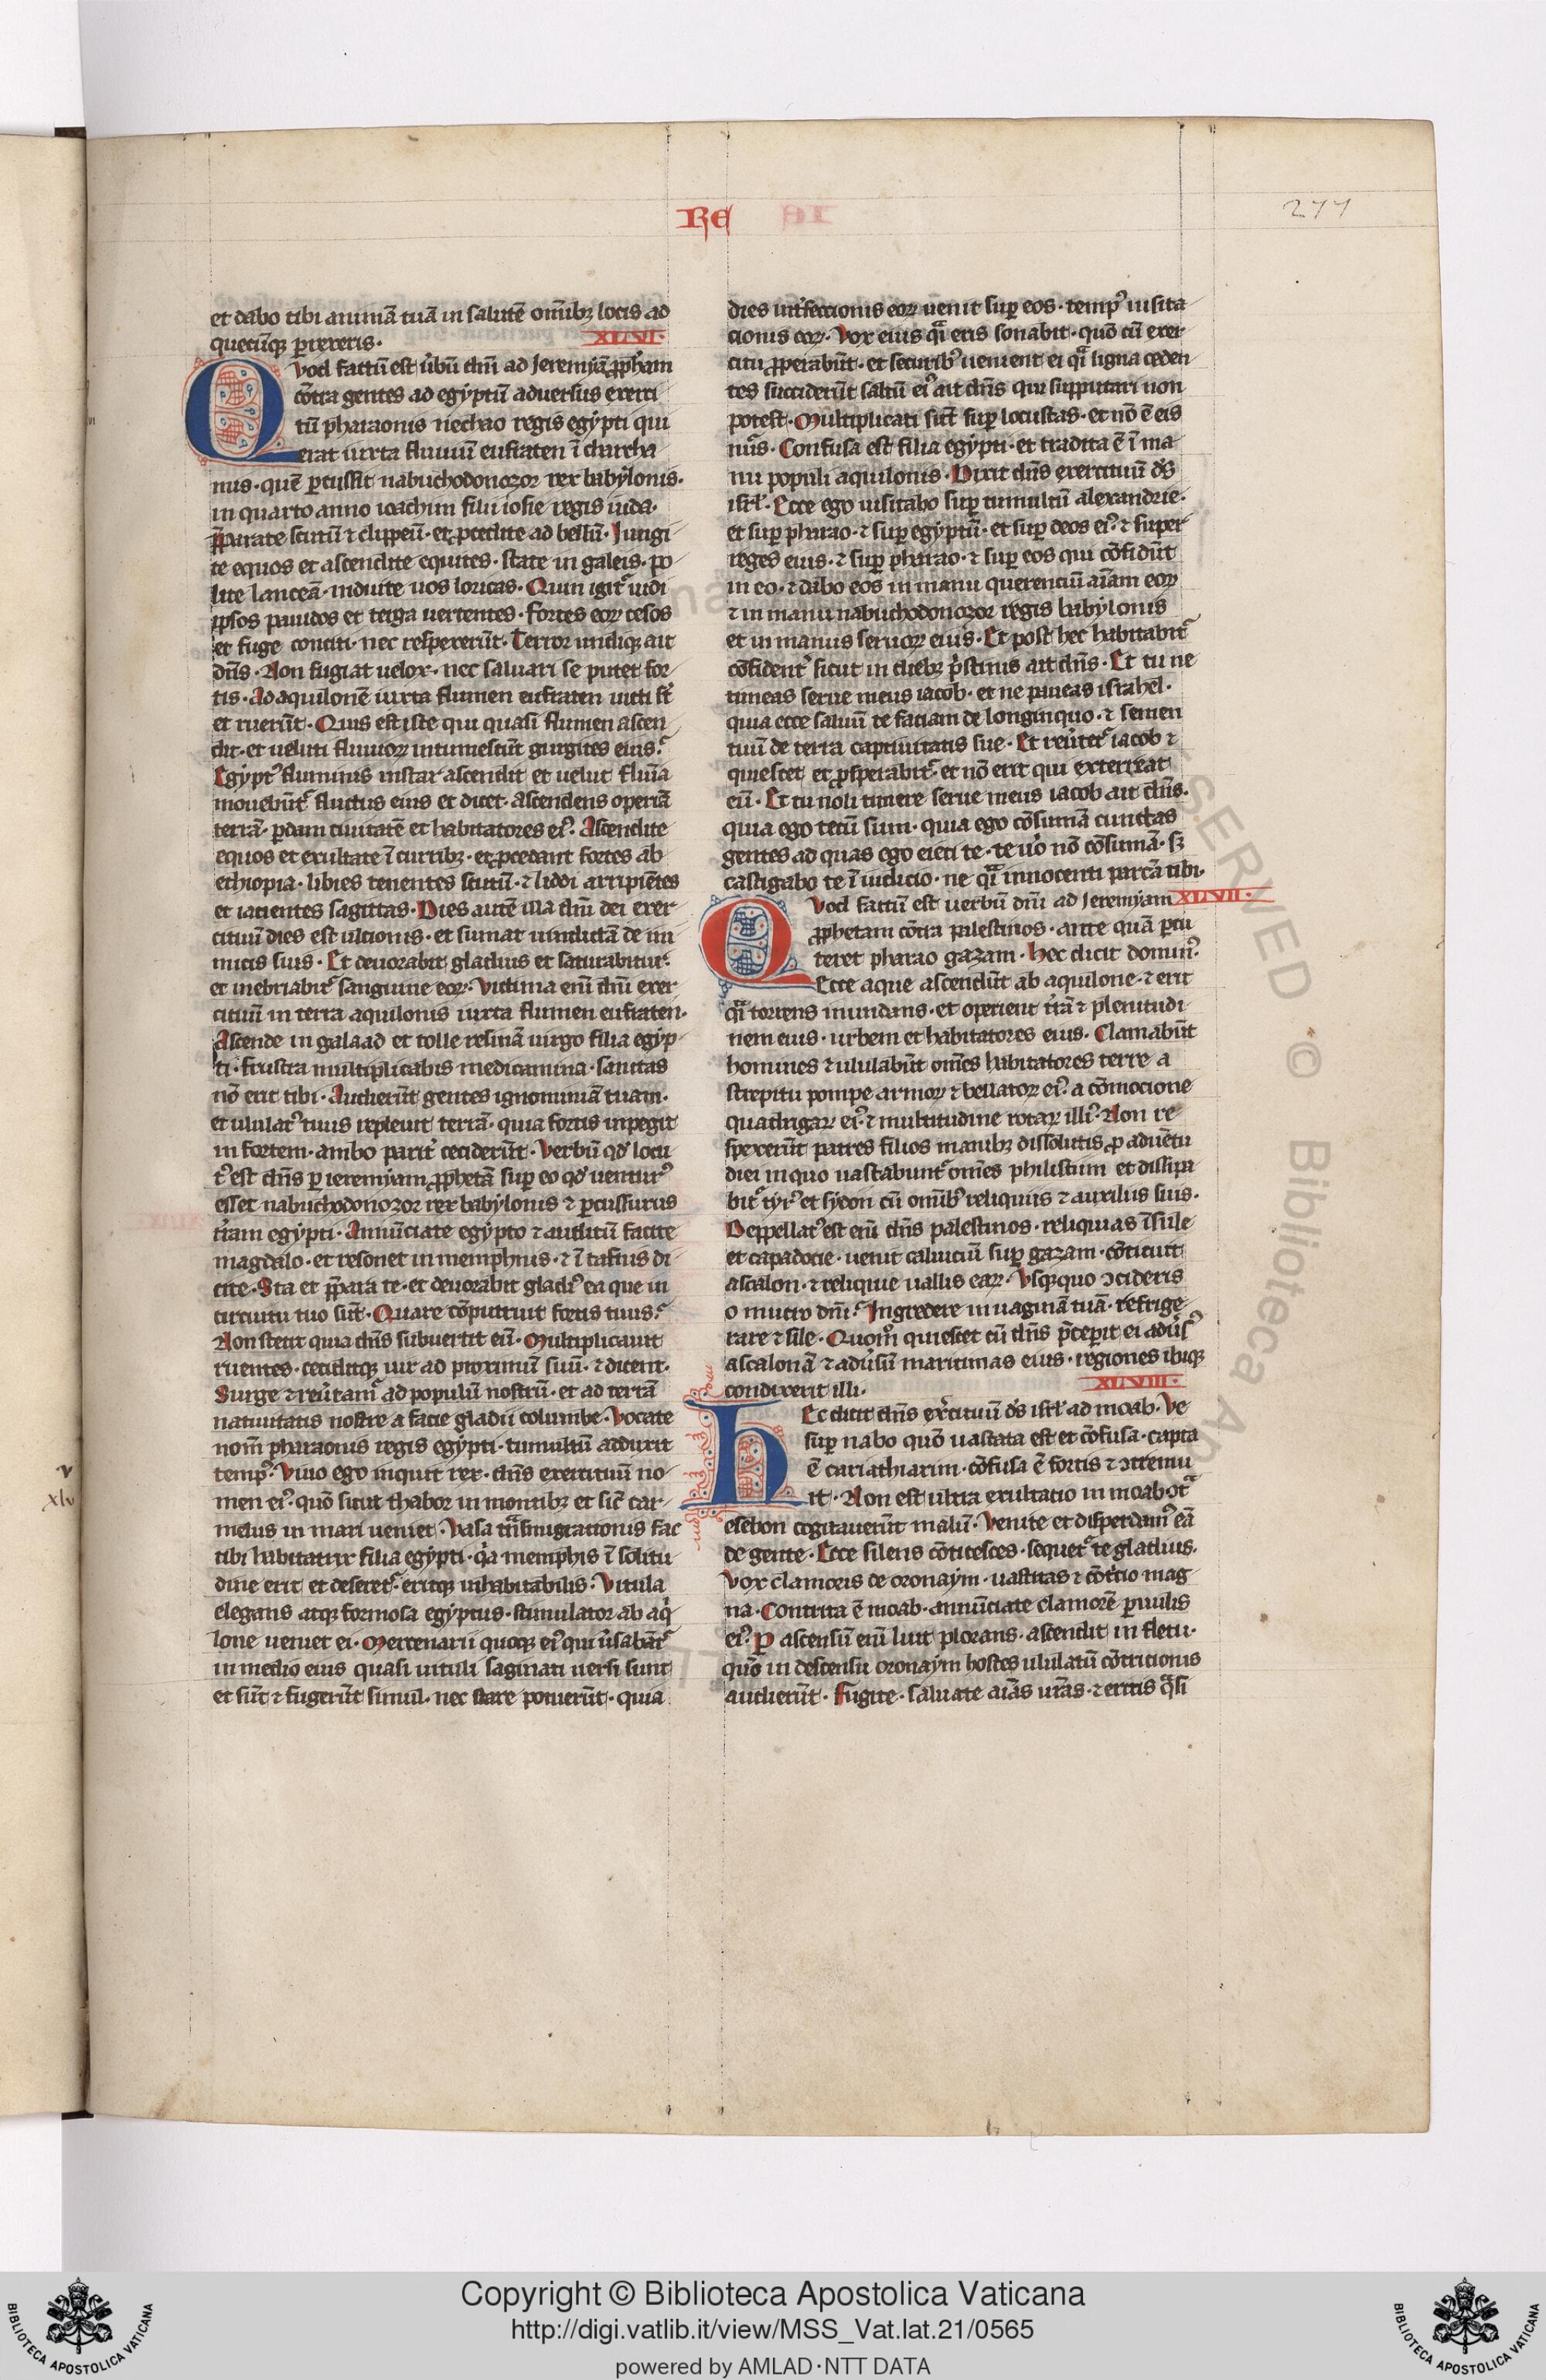 RE
277
et dabo tibi animā tuā in salutē omībꝫ locis ad
quecūqꝫ ꝑrexeris·
XLVI·
Qvod factū est ůbū dnī ad Jeremyā ꝓpħam
cōtra gentes ad egyptū aduersus exerci
tū pharaonis nechao regis egypti qui
erat iuxta fluuiū eufraten ī charcha
mis· quē ꝑcussit nabuchodonozor rex babylonis·
in quarto anno ioachim filii iosie regis iuda·
p̄parate scutū ⁊ clippeū· et ꝓcedite ad bellū· Jungi
te equos et ascendite equites· state in galeis· po
lite lanceā· induite uos loricas· Quin igit᷑ uidi
ipsos pauidos et terga uertentes· fortes eoꝝ cesos
et fuge conciti· nec respexerūt· Terror undiqꝫ ait
dn̄s· Non fugiat uelox· nec saluari se putet for
tis· Ad aquilonē iuxta flumen eufraten uicti st̄
et ruerūt· Quis est iste qui quasi flumen ascen
dit· et ueluti fluuioꝝ intumescūt gurgites eius·
Egyptꝰ fluminis instar ascendit et uelut flumīa
mouebūt᷑ fluctus eius et dicet· ascendens operiā
terrā· ꝑdam ciuitatē et habitatores eiꝰ· Ascendite
equos et exultate ī curribꝫ· et ꝓcedant fortes ab
ethiopia· libies tenentes scutū· ⁊ liddi arripiētes
et iacientes sagittas· Dies autē illa dnī dei exer
cituū dies est ultionis· et sumat uindictā de ini
micis suis· Et deuorabit gladius et saturabitur·
et inebriabit᷑ sanguine eoꝝ· Victima enī dnī exer
cituū in terra aquilonis iuxta flumen eufraten·
Ascende in galaad et tolle resinā uirgo filia egyp
ti· frustra multiplicabis medicamina· sanitas
nō erit tibi· Audierūt gentes ignominiā tuam·
et ululatꝰ tuus repleuit terrā· quia fortis inpegit
in fortem· ambo parit̉ ceciderūt· Verbū qd̓ locu
tꝰ est dn̄s ꝑ ieremyam ꝓphetā sup eo qd̓ uenturꝰ
esset nabuchodonozor rex babylonis ⁊ ꝑcussurus
t̉ram egypti· Annūciate egypto ⁊ auditū facite
magdalo· et resonet in memphis· ⁊ ī tafnis di
cite· Sta et p̄para te· et deuorabit gladiꝰ ea que in
circuitu tuo sūt· Quare cōputruit fortis tuus·
Non stetit quia dn̄s subuertit eū· Multiplicauit
ruentes· ceciditqꝫ uir ad proximū suū· ⁊ dicent·
Surge ⁊ reůtam᷑ ad populū nostrū· et ad terrā
natiuitatis nostre a facie gladii columbe· Vocate
nom̄ pharaonis regis egypti· tumultū adduxit
tempꝰ· Viuo ego inquit rex· dn̄s exercituū no
men eiꝰ· quō sicut thabor in montibꝫ et sic̄ car
melus in mari ueniet· Vasa trāsmigrationis fac
tibi habitatrix filia egypti· q̓a memphis ī solitu
dine erit et deseret᷑· eritqꝫ inhabitabilis· Vitula
elegans atqꝫ formosa egyptus· stimulator ab aq̓
lone ueniet ei· Mercenarii quoqꝫ eiꝰ qui ůsabāt᷑
in medio eius quasi uituli saginati uersi sunt
et sūt ⁊ fugerūt simul· nec stare potuerūt· quia
dies int̉fectionis eoꝝ uenit sup eos· tempꝰ uisita
cionis eoꝝ· Vox eius qͣi eris sonabit· quō cū exer
citu ꝓperabūt· et securibꝰ uenient ei qͣi ligna ceden
tes succiderūt saltū eiꝰ ait dn̄s qui supputari non
potest· Multiplicati sūt sup locustas· et nō ē eis
nūs· Confusa est filia egypti· et tradita ē ī ma
nu populi aquilonis· Dixit dn̄s exercituū ds̄
isrl̄· Ecce ego uisitabo sup tumultū alexandrie·
et sup pharao· ⁊ sup egyptū· et sup deos eiꝰ· ⁊ super
reges eius· ⁊ sup pharao· ⁊ sup eos qui cōfidūt
in eo· ⁊ dabo eos in manu querenciū aīam eoꝝ
⁊ in manu nabuchodonozor regis babylonis
et in manus seruoꝝ eius· Et post hec habitabit᷑
cōfident̉ sicut in diebꝫ p̓stinis ait dn̄s· Et tu ne
timeas serue meus iacob· et ne paueas israhel·
quia ecce saluū te faciam de longinquo· ⁊ semen
tuū de terra captiuitatis sue· Et reůtet᷑ iacob ⁊
quiescet et ꝓsperabit᷑· et nō erit qui exterreat
eū· Et tu noli timere serue meus iacob ait dn̄s·
quia ego tecū sum· quia ego cōsumā cunctas
gentes ad quas ego eieci te· te uo̓ nō cōsumā· sꝫ
castigabo te ī iudicio· ne qͣi innocenti parcā tibi·
Qvod factū est uerbū dnī ad Jeremyam XLVII·
ꝓphetam cōtra palestinos· ante quā ꝑcu
teret pharao gazam· Hec dicit dominꝰ·
Ecce aque ascendūt ab aquilone· ⁊ erit
qͣi torrens inundans· et operient t̉rā ⁊ plenitudi
nem eius· urbem et habitatores eius· Clamabūt
homines ⁊ ululabūt om̄es habitatores terre a
strepitu pompe armoꝝ ⁊ bellatoꝝ eiꝰ· a cōmocione
quadrigaꝝ eiꝰ· ⁊ multitudine rotaꝝ illiꝰ· Non re
spexerūt patres filios manibꝫ dissolutis ꝓ aduētu
diei in quo uastabunt᷑ om̄es philistiim et dissipa
bit᷑ tyrꝰ et sydon cū omībꝰ reliquiis ⁊ auxiliis suis·
Deppellatꝰ est enī dn̄s palestinos· reliquias īsule
et capadocie· uenit caluiciū sup gazam· cōticuit
ascalon· ⁊ reliquie uallis eaꝝ· Vsqꝫquo ↄcideris
o mucro dnī· Ingredere in uaginā tuā· refrige
rare ⁊ sile· Quom̊ quiescet cū dn̄s p̄ceperit ei adůsꝰ
ascalonā ⁊ adůsū maritimas eius· regiones ibiqꝫ
condixerit illi·
XLVIII·
Hec dicit dn̄s ex̓cituū ds̄ isrl̄ ad moab· Ve
sup nabo quō uastata est et cōfusa· capta
ē cariathiarim· cōfusa ē fortis ⁊ ↄtremu
it· Non est ultra exultatio in moab ↄtͣ
esebon cogitauerūt malū· Venite et disperdamꝰ eā
de gente· Ecce silens cōticesces· sequet᷑ te gladius·
Vox clamoris de oronaym· uastitas ⁊ cōt̓cio mag
na· Contrita ē moab· annūciate clamorē ꝑuulis
eiꝰ· ꝑ ascensū enī luit plorans· ascendit in fletu·
quō in descensu oronaym hostes ululatū cōtritionis
audierūt· Fugite· saluate aīas ur̄as· ⁊ eritis qͣsi
v
xlv
Copyright © Biblioteca Apostolica Vaticana
http://digi.vatlib.it/view/MSS_Vat.lat.21/0565
powered by AMLAD·NTT DATA
BIBLIOTECA APOSTOLICA VATICANA
BIBLIOTECA APOSTOLICA VATICANA